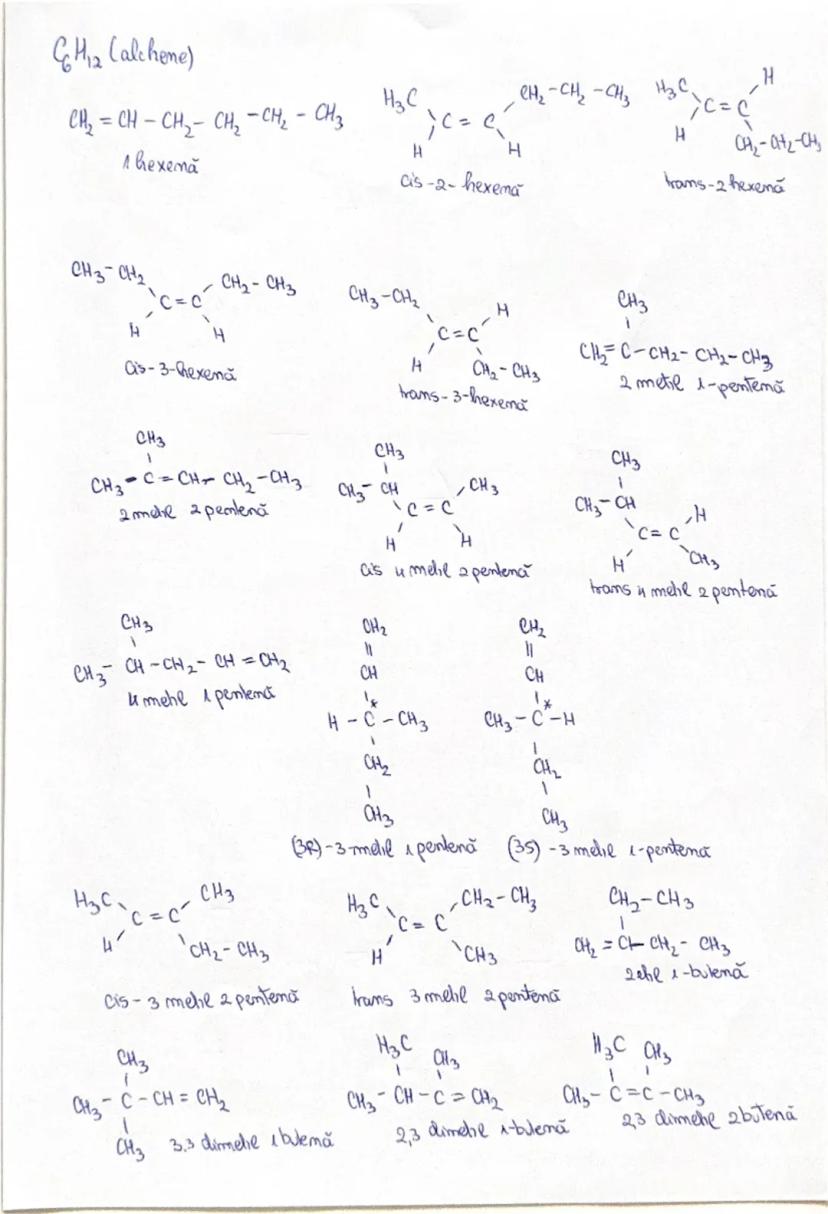 C6H12 (alchene)
CH2 = CH - CH2 - CH2 - CH2 - CH3
1 hexenă
H3C CH2-CH2-CH3
C = C
H H
cis-2-hexenă
H3C H
C = C
H CH2-CH2-CH3
trans-2 hexenă
CH3-CH2 CH2-CH3
C = C
H H
cis-3-hexenă
CH3-CH2 H
C = C
H CH2-CH3
trans-3-hexenă
CH3
CH2=C-CH2-CH2-CH3
2 metil 1-pentenă
CH3
CH3-C=CH-CH2-CH3
2 metil 2 pentenă
CH3
CH3-CH CH3
C = C
H H
cis 4 metil 2 pentenă
CH3
CH3-CH H
C = C
H CH3
trans 4 metil 2 pentenă
CH3
CH3-CH-CH2-CH=CH2
4 metil 1 pentenă
CH2
||
CH
*
H - C - CH3
CH2
CH3
(3R)-3-metil 1 pentenă
CH2
||
CH
*
CH3 - C - H
CH2
CH3
(3S)-3 metil 1-pentenă
H3C CH3
C = C
H CH2-CH3
cis-3 metil 2 pentenă
H3C CH2-CH3
C = C
H CH3
trans 3 metil 2 pentenă
CH2-CH3
CH2=C-CH2-CH3
2 etil 1-butenă
CH3
CH3-C-CH=CH2
CH3
3,3 dimetil 1 butenă
H3C CH3
CH3-CH-C=CH2
2,3 dimetil 1-butenă
H3C CH3
CH3-C=C-CH3
2,3 dimetil 2 butenă